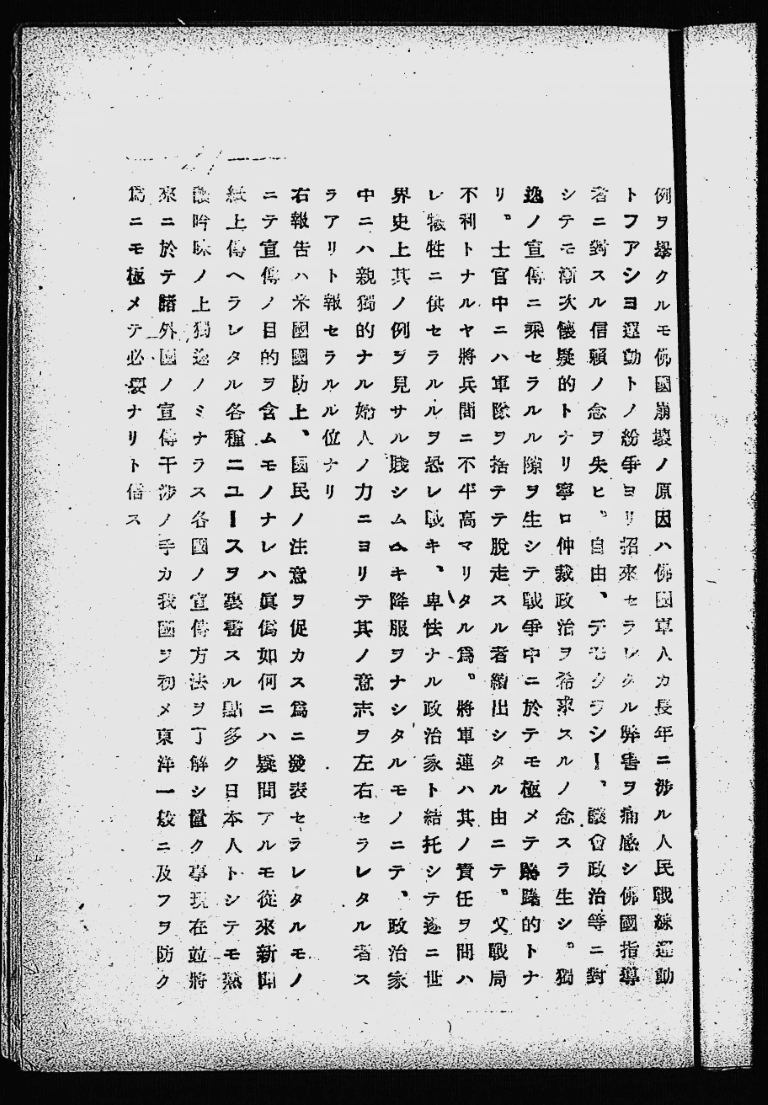 例ヲ擧クルモ佛國崩壞ノ原因ハ佛國軍人カ長年ニ涉ル人民戰線運動
トフアシヨ運動トノ紛爭ヨリ招來セラレタル弊害ヲ痛感シ佛國指導
者ニ對スル信賴ノ念ヲ失ヒ。自由、デモクラシー、議會政治等ニ對
シテモ漸次懷疑的トナリ寧ロ仲裁政治ヲ希求スルノ念スラ生シ。獨
逸ノ宣傳ニ乘セラルル隙ヲ生シテ戰爭中ニ於テモ極メテ 的トナ
リ。士官中ニハ軍隊ヲ捨テテ脫走スル者續出シタル由ニテ。又戰局
不利トナルヤ將兵間ニ不平高マリタル爲。將軍連ハ其ノ責任ヲ問ハ
レ犧牲ニ供セラルルヲ恐レ戰キ、卑怯ナル政治家ト結托シテ遂ニ世
界史上其ノ例ヲ見サル賤シムヘキ降服ヲナシタルモノニテ、政治家
中ニハ親獨的ナル婦人ノ力ニヨリテ其ノ意志ヲ左右セラレタル者ス
ラアリト報セラルル位ナリ
右報告ハ米國國防上、國民ノ注意ヲ促カス爲ニ發表セラレタルモノ
ニテ宣傳ノ目的ヲ含ムモノナレハ眞僞如何ニハ疑問アルモ從來新聞
紙上傳ヘラレタル各種ニユースヲ裏書スル點多ク日本人トシテモ熟
讀吟味ノ上獨逸ノミナラス各國ノ宣傳方法ヲ了解シ置ク事現在竝將
來ニ於テ諸外國ノ宣傳干涉ノ手カ我國ヲ初メ東洋一般ニ及フヲ防ク
爲ニモ極メテ必要ナリト信ス